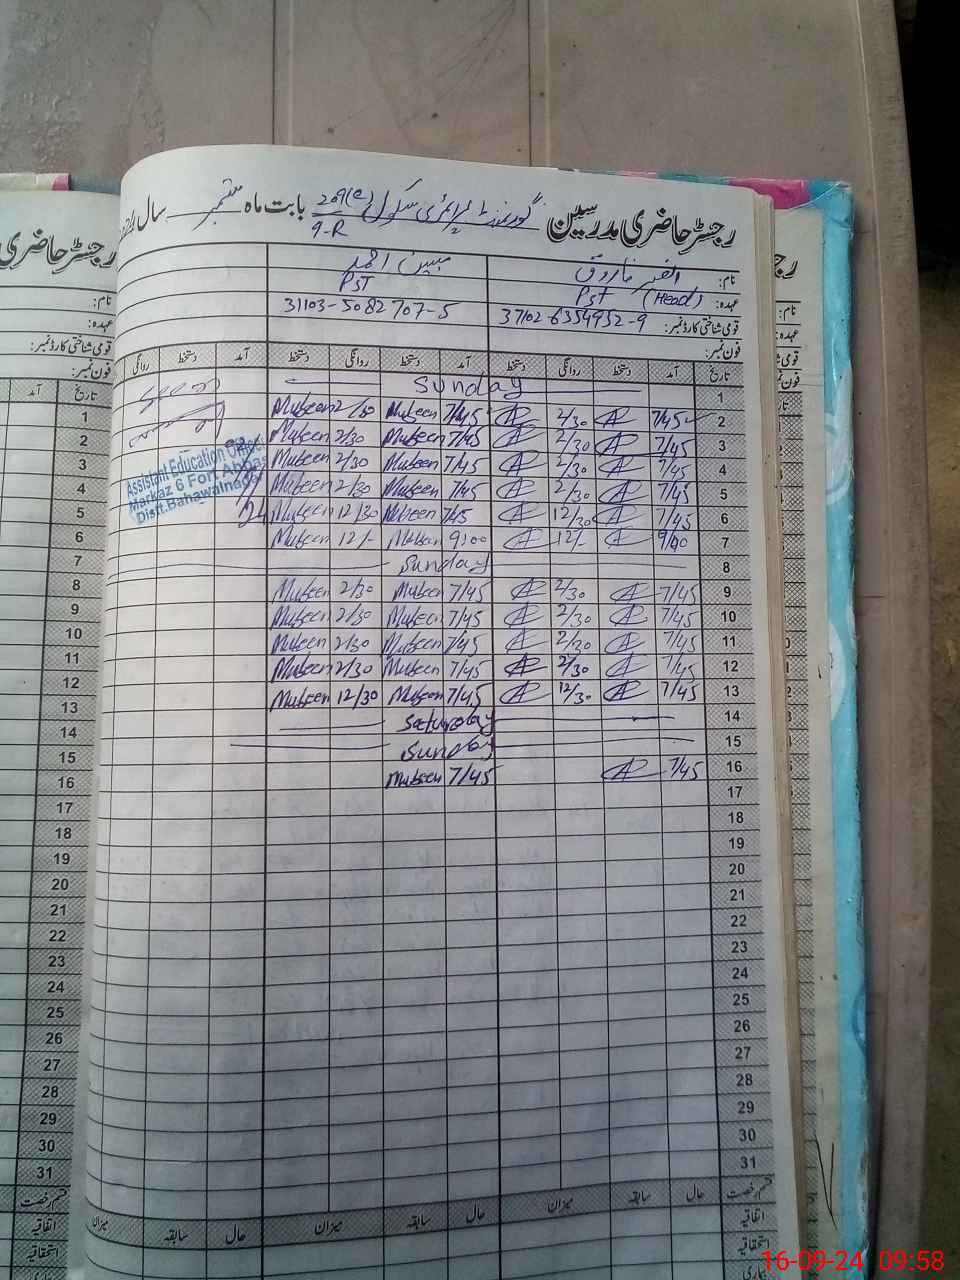 رجسٹر حاضری مدرسین گورنمنٹ پرائمری سکول 209(e) 9-R بابت ماہ ستمبر سال
نام: انصر فاروق مبین احمد
عہدہ: PST (Head) PST
قومی شناختی کارڈ نمبر: 37102-6354952-9 31103-5082707-5
فون نمبر:
تاریخ آمد دستخط روانگی دستخط آمد دستخط روانگی دستخط آمد دستخط روانگی
1 Sunday
2 7/45 2/30 7/45 Mubeen 2/30 Mubeen
3 7/45 2/30 7/45 Mubeen 2/30 Mubeen
4 7/45 2/30 7/45 Mubeen 2/30 Mubeen
5 7/45 2/30 7/45 Mubeen 2/30 Mubeen
6 7/45 12/30 7/45 Mubeen 12/30 Mubeen
7 9/00 12/- 9:00 Mubeen 12/- Mubeen
8 Sunday
9 7/45 2/30 7/45 Mubeen 2/30 Mubeen
10 7/45 2/30 7/45 Mubeen 2/30 Mubeen
11 7/45 2/30 7/45 Mubeen 2/30 Mubeen
12 7/45 2/30 7/45 Mubeen 2/30 Mubeen
13 7/45 12/30 7/45 Mubeen 12/30 Mubeen
14 Saturday
15 Sunday
16 7/45 7/45 Mubeen
17
18
19
20
21
22
23
24
25
26
27
28
29
30
31
قسم رخصت حال سابقہ میزان حال سابقہ میزان حال سابقہ میزان
اتفاقیہ
استحقاقیہ
Assistant Education Officer
Markaz 6 Fort Abbas
Distt.Bahawalnagar
رجسٹر حاضری
نام:
عہدہ:
قومی شناختی کارڈ نمبر:
فون نمبر:
تاریخ آمد
1
2
3
4
5
6
7
8
9
10
11
12
13
14
15
16
17
18
19
20
21
22
23
24
25
26
27
28
29
30
31
قسم رخصت
اتفاقیہ
استحقاقیہ
16-09-24 09:58